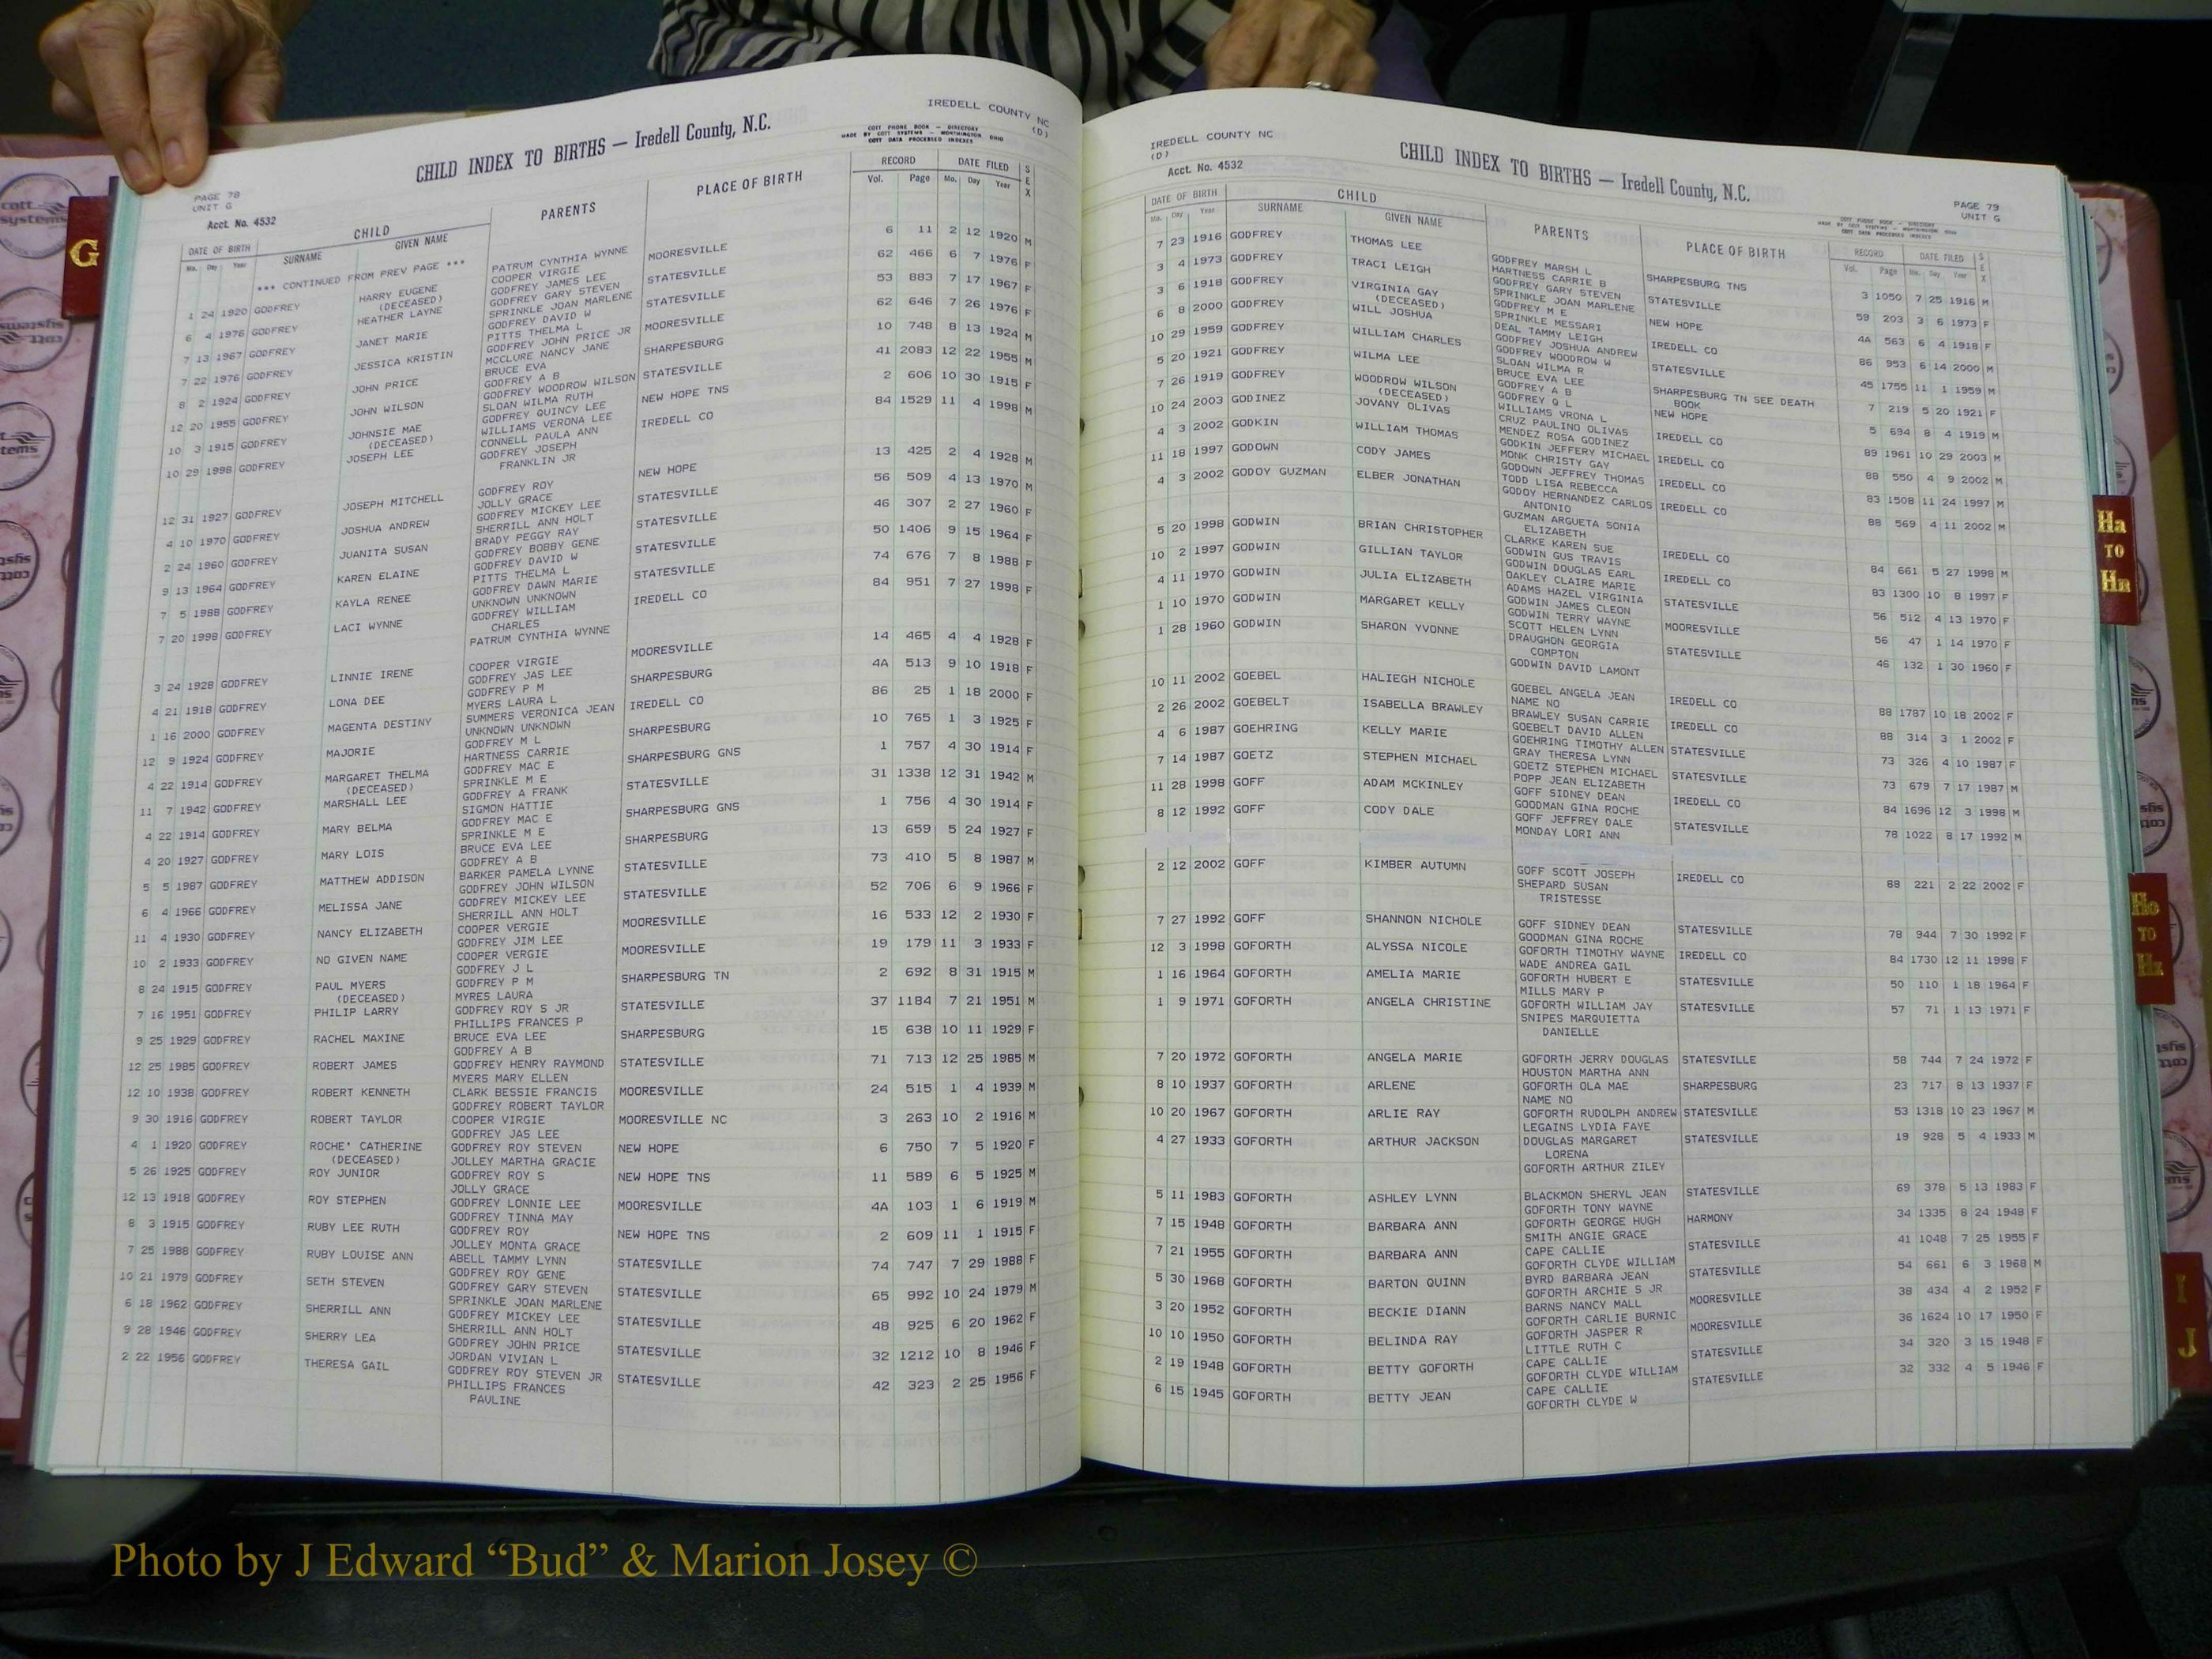 IREDELL COUNTY NC
(D)
CHILD INDEX TO BIRTHS — Iredell County, N.C.
COTT PHONE BOOK — DIRECTORY
MADE BY COTT SYSTEMS — WORTHINGTON OHIO
COTT DATA PROCESSED INDEXES
PAGE 78
UNIT G
Acct. No. 4532
DATE OF BIRTH CHILD PARENTS PLACE OF BIRTH RECORD DATE FILED SEX
Mo. Day Year SURNAME GIVEN NAME Vol. Page Mo. Day Year
*** CONTINUED FROM PREV PAGE ***
PATRUM CYNTHIA WYNNE
1 24 1920 GODFREY HARRY EUGENE COOPER VIRGIE MOORESVILLE 6 11 2 12 1920 M
(DECEASED) GODFREY JAMES LEE
6 4 1976 GODFREY HEATHER LAYNE GODFREY GARY STEVEN STATESVILLE 62 466 6 7 1976 F
SPRINKLE JOAN MARLENE
7 13 1967 GODFREY JANET MARIE GODFREY DAVID W STATESVILLE 53 883 7 17 1967 F
PITTS THELMA L
7 22 1976 GODFREY JESSICA KRISTIN GODFREY JOHN PRICE JR MOORESVILLE 62 646 7 26 1976 F
MCCLURE NANCY JANE
8 2 1924 GODFREY JOHN PRICE BRUCE EVA SHARPESBURG 10 748 8 13 1924 M
GODFREY A B
12 20 1955 GODFREY JOHN WILSON GODFREY WOODROW WILSON STATESVILLE 41 2083 12 22 1955 M
SLOAN WILMA RUTH
10 3 1915 GODFREY JOHNSIE MAE GODFREY QUINCY LEE NEW HOPE TNS 2 606 10 30 1915 F
(DECEASED) WILLIAMS VERONA LEE
10 29 1998 GODFREY JOSEPH LEE CONNELL PAULA ANN IREDELL CO 84 1529 11 4 1998 M
GODFREY JOSEPH
FRANKLIN JR
12 31 1927 GODFREY JOSEPH MITCHELL GODFREY ROY NEW HOPE 13 425 2 4 1928 M
JOLLY GRACE
4 10 1970 GODFREY JOSHUA ANDREW GODFREY MICKEY LEE STATESVILLE 56 509 4 13 1970 M
SHERRILL ANN HOLT
2 24 1960 GODFREY JUANITA SUSAN BRADY PEGGY RAY STATESVILLE 46 307 2 27 1960 F
GODFREY BOBBY GENE
9 13 1964 GODFREY KAREN ELAINE GODFREY DAVID W STATESVILLE 50 1406 9 15 1964 F
PITTS THELMA L
7 5 1988 GODFREY KAYLA RENEE GODFREY DAWN MARIE STATESVILLE 74 676 7 8 1988 F
UNKNOWN UNKNOWN
7 20 1998 GODFREY LACI WYNNE GODFREY WILLIAM IREDELL CO 84 951 7 27 1998 F
CHARLES
PATRUM CYNTHIA WYNNE
3 24 1928 GODFREY LINNIE IRENE COOPER VIRGIE MOORESVILLE 14 465 4 4 1928 F
GODFREY JAS LEE
4 21 1918 GODFREY LONA DEE GODFREY P M SHARPESBURG 4A 513 9 10 1918 F
MYERS LAURA L
1 16 2000 GODFREY MAGENTA DESTINY SUMMERS VERONICA JEAN IREDELL CO 86 25 1 18 2000 F
UNKNOWN UNKNOWN
12 9 1924 GODFREY MAJORIE GODFREY M L SHARPESBURG 10 765 1 3 1925 F
HARTNESS CARRIE
4 22 1914 GODFREY MARGARET THELMA GODFREY MAC E SHARPESBURG GNS 1 757 4 30 1914 F
(DECEASED) SPRINKLE M E
11 7 1942 GODFREY MARSHALL LEE GODFREY A FRANK STATESVILLE 31 1338 12 31 1942 M
SIGMON HATTIE
4 22 1914 GODFREY MARY BELMA GODFREY MAC E SHARPESBURG GNS 1 756 4 30 1914 F
SPRINKLE M E
4 20 1927 GODFREY MARY LOIS BRUCE EVA LEE SHARPESBURG 13 659 5 24 1927 F
GODFREY A B
5 5 1987 GODFREY MATTHEW ADDISON BARKER PAMELA LYNNE STATESVILLE 73 410 5 8 1987 M
GODFREY JOHN WILSON
6 4 1966 GODFREY MELISSA JANE GODFREY MICKEY LEE STATESVILLE 52 706 6 9 1966 F
SHERRILL ANN HOLT
11 4 1930 GODFREY NANCY ELIZABETH COOPER VERGIE MOORESVILLE 16 533 12 2 1930 F
GODFREY JIM LEE
10 2 1933 GODFREY NO GIVEN NAME COOPER VERGIE MOORESVILLE 19 179 11 3 1933 F
GODFREY J L
8 24 1915 GODFREY PAUL MYERS GODFREY P M SHARPESBURG TN 2 692 8 31 1915 M
(DECEASED) MYRES LAURA
7 16 1951 GODFREY PHILIP LARRY GODFREY ROY S JR STATESVILLE 37 1184 7 21 1951 M
PHILLIPS FRANCES P
9 25 1929 GODFREY RACHEL MAXINE BRUCE EVA LEE SHARPESBURG 15 638 10 11 1929 F
GODFREY A B
12 25 1985 GODFREY ROBERT JAMES GODFREY HENRY RAYMOND STATESVILLE 71 713 12 25 1985 M
MYERS MARY ELLEN
12 10 1938 GODFREY ROBERT KENNETH CLARK BESSIE FRANCIS MOORESVILLE 24 515 1 4 1939 M
GODFREY ROBERT TAYLOR
9 30 1916 GODFREY ROBERT TAYLOR COOPER VIRGIE MOORESVILLE NC 3 263 10 2 1916 M
GODFREY JAS LEE
4 1 1920 GODFREY ROCHE' CATHERINE GODFREY ROY STEVEN NEW HOPE 6 750 7 5 1920 F
(DECEASED) JOLLEY MARTHA GRACIE
5 26 1925 GODFREY ROY JUNIOR GODFREY ROY S NEW HOPE TNS 11 589 6 5 1925 M
JOLLY GRACE
12 13 1918 GODFREY ROY STEPHEN GODFREY LONNIE LEE MOORESVILLE 4A 103 1 6 1919 M
GODFREY TINNA MAY
8 3 1915 GODFREY RUBY LEE RUTH GODFREY ROY NEW HOPE TNS 2 609 11 1 1915 F
JOLLEY MONTA GRACE
7 25 1988 GODFREY RUBY LOUISE ANN ABELL TAMMY LYNN STATESVILLE 74 747 7 29 1988 F
GODFREY ROY GENE
10 21 1979 GODFREY SETH STEVEN GODFREY GARY STEVEN STATESVILLE 65 992 10 24 1979 M
SPRINKLE JOAN MARLENE
6 18 1962 GODFREY SHERRILL ANN GODFREY MICKEY LEE STATESVILLE 48 925 6 20 1962 F
SHERRILL ANN HOLT
9 28 1946 GODFREY SHERRY LEA GODFREY JOHN PRICE STATESVILLE 32 1212 10 8 1946 F
JORDAN VIVIAN L
2 22 1956 GODFREY THERESA GAIL GODFREY ROY STEVEN JR STATESVILLE 42 323 2 25 1956 F
PHILLIPS FRANCES
PAULINE
IREDELL COUNTY NC
(D)
Acct. No. 4532
CHILD INDEX TO BIRTHS — Iredell County, N.C.
PAGE 79
UNIT G
COTT PHONE BOOK — DIRECTORY
MADE BY COTT SYSTEMS — WORTHINGTON OHIO
COTT DATA PROCESSED INDEXES
DATE OF BIRTH CHILD PARENTS PLACE OF BIRTH RECORD DATE FILED SEX
Mo. Day Year SURNAME GIVEN NAME Vol. Page Mo. Day Year
7 23 1916 GODFREY THOMAS LEE GODFREY MARSH L SHARPESBURG TNS 3 1050 7 25 1916 M
HARTNESS CARRIE B
3 4 1973 GODFREY TRACI LEIGH GODFREY GARY STEVEN STATESVILLE 59 203 3 6 1973 F
SPRINKLE JOAN MARLENE
3 6 1918 GODFREY VIRGINIA GAY GODFREY M E NEW HOPE 4A 563 6 4 1918 F
(DECEASED) SPRINKLE MESSARI
6 8 2000 GODFREY WILL JOSHUA DEAL TAMMY LEIGH IREDELL CO 86 953 6 14 2000 M
GODFREY JOSHUA ANDREW
10 29 1959 GODFREY WILLIAM CHARLES GODFREY WOODROW W STATESVILLE 45 1755 11 1 1959 M
SLOAN WILMA R
5 20 1921 GODFREY WILMA LEE BRUCE EVA LEE SHARPESBURG TN SEE DEATH 7 219 5 20 1921 F
GODFREY A B BOOK
7 26 1919 GODFREY WOODROW WILSON GODFREY Q L NEW HOPE 5 694 8 4 1919 M
(DECEASED) WILLIAMS VRONA L
10 24 2003 GODINEZ JOVANY OLIVAS CRUZ PAULINO OLIVAS IREDELL CO 89 1961 10 29 2003 M
MENDEZ ROSA GODINEZ
4 3 2002 GODKIN WILLIAM THOMAS GODKIN JEFFERY MICHAEL IREDELL CO 88 550 4 9 2002 M
MONK CHRISTY GAY
11 18 1997 GODOWN CODY JAMES GODOWN JEFFREY THOMAS IREDELL CO 83 1508 11 24 1997 M
TODD LISA REBECCA
4 3 2002 GODOY GUZMAN ELBER JONATHAN GODOY HERNANDEZ CARLOS IREDELL CO 88 569 4 11 2002 M
ANTONIO
GUZMAN ARGUETA SONIA
ELIZABETH
5 20 1998 GODWIN BRIAN CHRISTOPHER CLARKE KAREN SUE IREDELL CO 84 661 5 27 1998 M
GODWIN GUS TRAVIS
10 2 1997 GODWIN GILLIAN TAYLOR GODWIN DOUGLAS EARL IREDELL CO 83 1300 10 8 1997 F
OAKLEY CLAIRE MARIE
4 11 1970 GODWIN JULIA ELIZABETH ADAMS HAZEL VIRGINIA STATESVILLE 56 512 4 13 1970 F
GODWIN JAMES CLEON
1 10 1970 GODWIN MARGARET KELLY GODWIN TERRY WAYNE MOORESVILLE 56 47 1 14 1970 F
SCOTT HELEN LYNN
1 28 1960 GODWIN SHARON YVONNE DRAUGHON GEORGIA STATESVILLE 46 132 1 30 1960 F
COMPTON
GODWIN DAVID LAMONT
10 11 2002 GOEBEL HALIEGH NICHOLE GOEBEL ANGELA JEAN IREDELL CO 88 1787 10 18 2002 F
NAME NO
2 26 2002 GOEBELT ISABELLA BRAWLEY BRAWLEY SUSAN CARRIE IREDELL CO 88 314 3 1 2002 F
GOEBELT DAVID ALLEN
4 6 1987 GOEHRING KELLY MARIE GOEHRING TIMOTHY ALLEN STATESVILLE 73 326 4 10 1987 F
GRAY THERESA LYNN
7 14 1987 GOETZ STEPHEN MICHAEL GOETZ STEPHEN MICHAEL STATESVILLE 73 679 7 17 1987 M
POPP JEAN ELIZABETH
11 28 1998 GOFF ADAM MCKINLEY GOFF SIDNEY DEAN IREDELL CO 84 1696 12 3 1998 M
GOODMAN GINA ROCHE
8 12 1992 GOFF CODY DALE GOFF JEFFREY DALE STATESVILLE 78 1022 8 17 1992 M
MONDAY LORI ANN
2 12 2002 GOFF KIMBER AUTUMN GOFF SCOTT JOSEPH IREDELL CO 88 221 2 22 2002 F
SHEPARD SUSAN
TRISTESSE
7 27 1992 GOFF SHANNON NICHOLE GOFF SIDNEY DEAN STATESVILLE 78 944 7 30 1992 F
GOODMAN GINA ROCHE
12 3 1998 GOFORTH ALYSSA NICOLE GOFORTH TIMOTHY WAYNE IREDELL CO 84 1730 12 11 1998 F
WADE ANDREA GAIL
1 16 1964 GOFORTH AMELIA MARIE GOFORTH HUBERT E STATESVILLE 50 110 1 18 1964 F
MILLS MARY P
1 9 1971 GOFORTH ANGELA CHRISTINE GOFORTH WILLIAM JAY STATESVILLE 57 71 1 13 1971 F
SNIPES MARQUIETTA
DANIELLE
7 20 1972 GOFORTH ANGELA MARIE GOFORTH JERRY DOUGLAS STATESVILLE 58 744 7 24 1972 F
HOUSTON MARTHA ANN
8 10 1937 GOFORTH ARLENE GOFORTH OLA MAE SHARPESBURG 23 717 8 13 1937 F
NAME NO
10 20 1967 GOFORTH ARLIE RAY GOFORTH RUDOLPH ANDREW STATESVILLE 53 1318 10 23 1967 M
LEGAINS LYDIA FAYE
4 27 1933 GOFORTH ARTHUR JACKSON DOUGLAS MARGARET STATESVILLE 19 928 5 4 1933 M
LORENA
GOFORTH ARTHUR ZILEY
5 11 1983 GOFORTH ASHLEY LYNN BLACKMON SHERYL JEAN STATESVILLE 69 378 5 13 1983 F
GOFORTH TONY WAYNE
7 15 1948 GOFORTH BARBARA ANN GOFORTH GEORGE HUGH HARMONY 34 1335 8 24 1948 F
SMITH ANGIE GRACE
7 21 1955 GOFORTH BARBARA ANN CAPE CALLIE STATESVILLE 41 1048 7 25 1955 F
GOFORTH CLYDE WILLIAM
5 30 1968 GOFORTH BARTON QUINN BYRD BARBARA JEAN STATESVILLE 54 661 6 3 1968 M
GOFORTH ARCHIE S JR
3 20 1952 GOFORTH BECKIE DIANN BARNS NANCY MALL MOORESVILLE 38 434 4 2 1952 F
GOFORTH CARLIE BURNIC
10 10 1950 GOFORTH BELINDA RAY GOFORTH JASPER R MOORESVILLE 36 1624 10 17 1950 F
LITTLE RUTH C
2 19 1948 GOFORTH BETTY GOFORTH CAPE CALLIE STATESVILLE 34 320 3 15 1948 F
GOFORTH CLYDE WILLIAM
6 15 1945 GOFORTH BETTY JEAN CAPE CALLIE STATESVILLE 32 332 4 5 1946 F
GOFORTH CLYDE W
G
Ha
TO
Hn
Ho
TO
Hz
I
J
cott
systems
Photo by J Edward “Bud” & Marion Josey ©